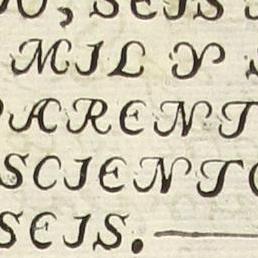 O, SEIS
MIL Y
PARENT
SCIENTO
SEIS.